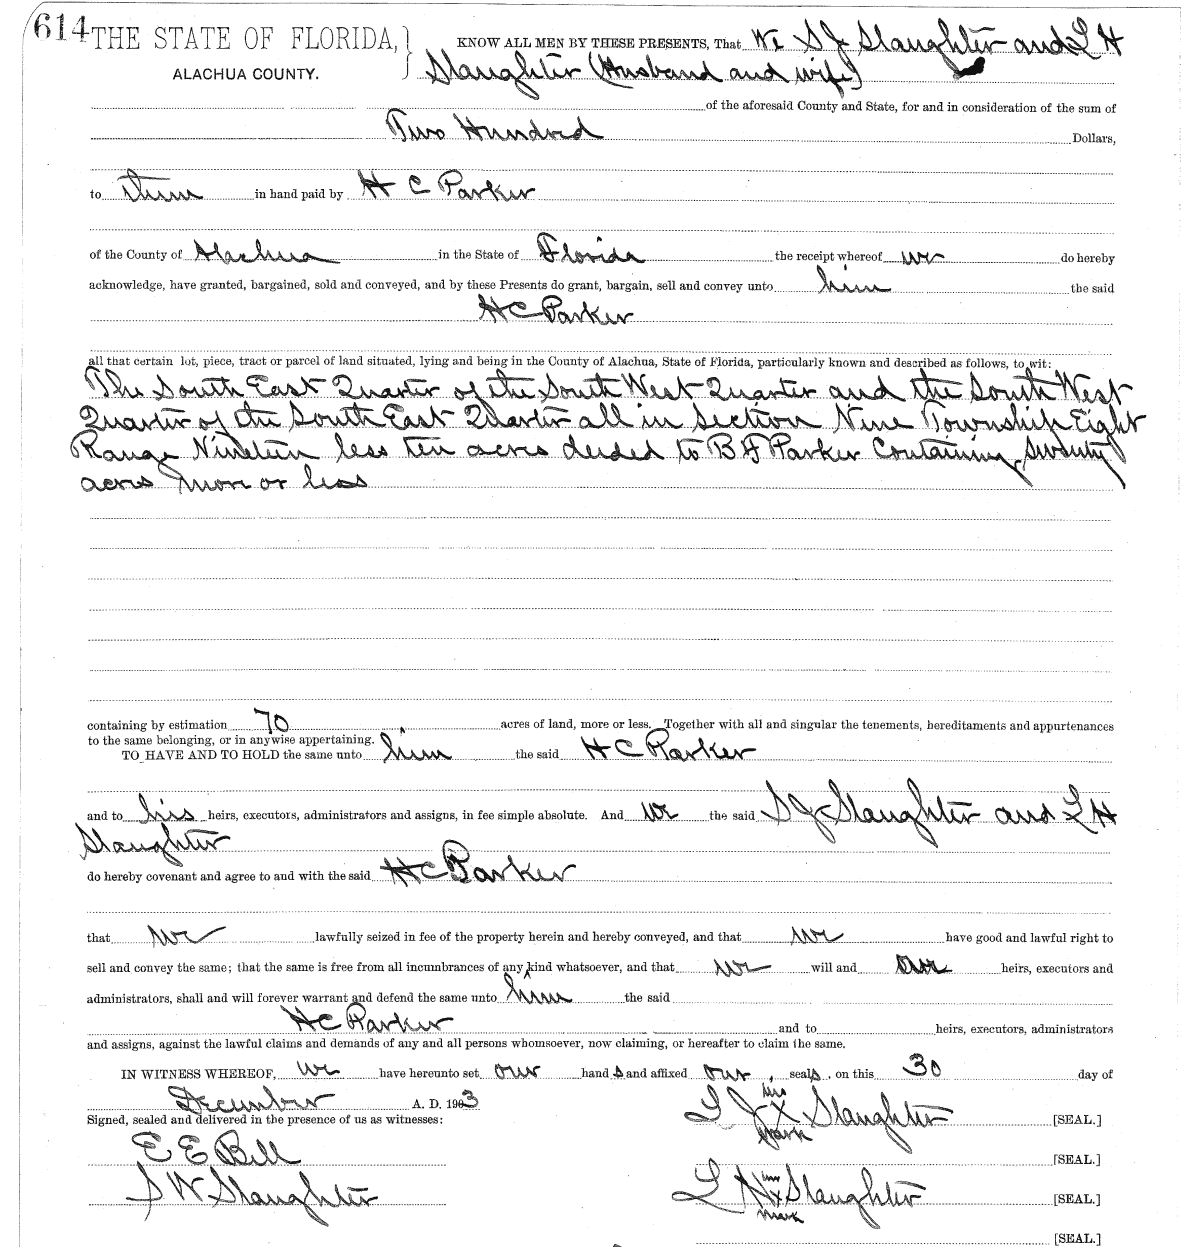 614 THE STATE OF FLORIDA, KNOW ALL MEN BY THESE PRESENTS, That We S J Slaughter and L H
ALACHUA COUNTY. Slaughter (Husband and wife)
of the aforesaid County and State, for and in consideration of the sum of
Two Hundred Dollars,
to them in hand paid by H C Parker
of the County of Alachua in the State of Florida the receipt whereof we do hereby
acknowledge, have granted, bargained, sold and conveyed, and by these Presents do grant, bargain, sell and convey unto him the said
H C Parker
all that certain lot, piece, tract or parcel of land situated, lying and being in the County of Alachua, State of Florida, particularly known and described as follows, to wit:
The South East Quarter of the South West Quarter and the South West
Quarter of the South East Quarter all in Section Nine Township Eight
Range Nineteen less ten acres deeded to B F Parker Containing Seventy
acres more or less
containing by estimation 70 acres of land, more or less. Together with all and singular the tenements, hereditaments and appurtenances
to the same belonging, or in anywise appertaining.
TO HAVE AND TO HOLD the same unto him the said H C Parker
and to his heirs, executors, administrators and assigns, in fee simple absolute. And we the said S J Slaughter and L H
Slaughter
do hereby covenant and agree to and with the said H C Parker
that we lawfully seized in fee of the property herein and hereby conveyed, and that we have good and lawful right to
sell and convey the same; that the same is free from all incumbrances of any kind whatsoever, and that we will and our heirs, executors and
administrators, shall and will forever warrant and defend the same unto him the said
H C Parker and to heirs, executors, administrators
and assigns, against the lawful claims and demands of any and all persons whomsoever, now claiming, or hereafter to claim the same.
IN WITNESS WHEREOF, we have hereunto set our hands and affixed our seals, on this 30 day of
December A. D. 1903
his
Signed, sealed and delivered in the presence of us as witnesses: J X Slaughter [SEAL.]
mark
E E Bell [SEAL.]
S W Slaughter L H X Slaughter [SEAL.]
mark
[SEAL.]